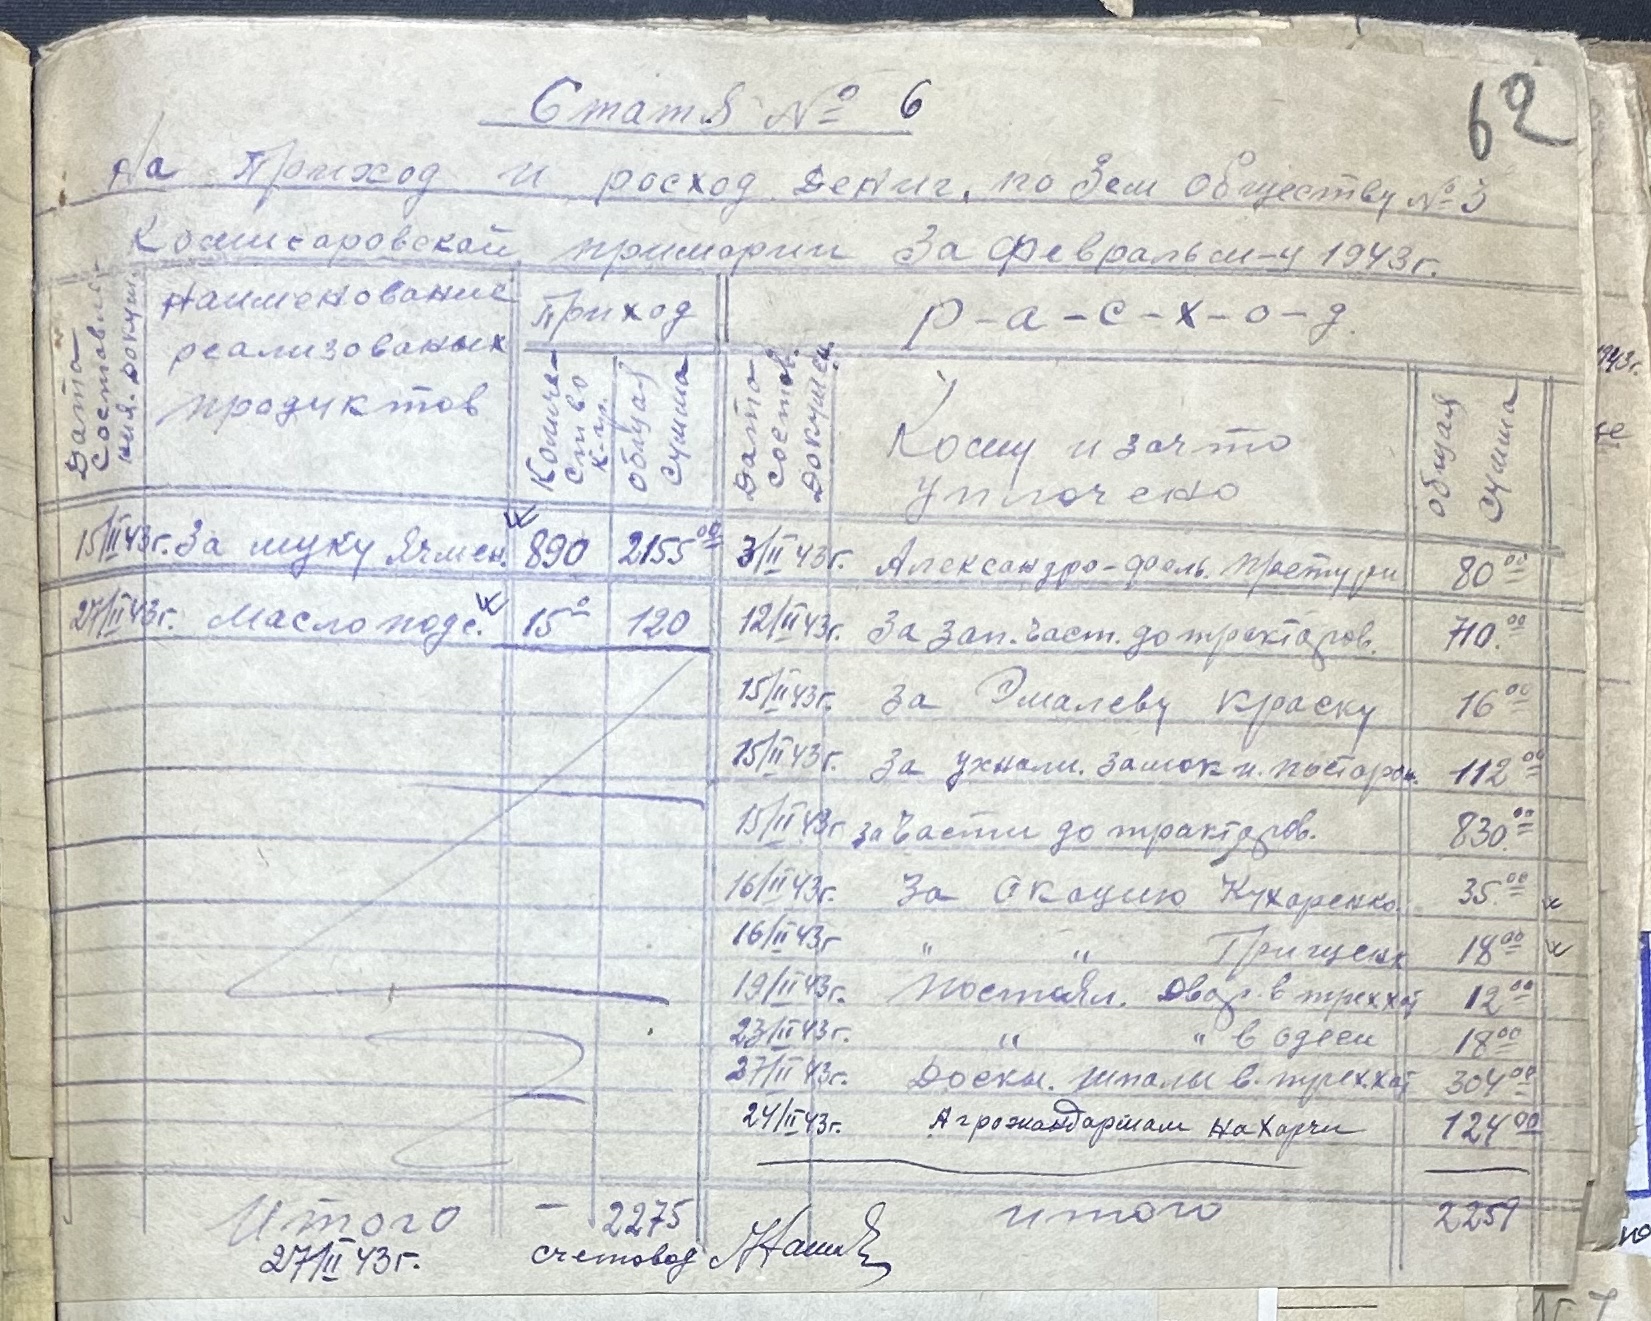 62
Статя № 6
На Приход и росход дениг. по Зем Обществу № 3
Комисаровской примарии За февраль м-ц 1943г.
Дата составле-ния. докум.
Наименование реализованых продуктов
Приход
Количе-ство к-гр.
общая сумма
Р-а-с-х-о-д.
Дата состов. докумен.
Кому и зачто уплочено
общая сумма
15/II 43г. За муку Ячмен. 890 2155 00
27/II 43г. Масло подс. 15 0 120
3/II 43г. Александро-фельд. претури 80 00
12/II 43г. За зап. част. до тракторов. 710 00
15/II 43г. За Эмалеву краску 16 00
15/II 43г. За ухнали. замок и. 112 00
15/II 43г. за части до тракторов. 830 00
16/II 43г. За Акацию Кухаренко 35 00
16/II 43г. " " Грищенк 18 00
19/II 43г. постоял. в трихат 12 00
23/II 43г. " " в одеси 18 00
27/II 43г. Доскы. шпалы в. трих.хат 304 00
24/II 43г. Агрожандармам на харчи 124 00
Итого – 2275
итого 2259
27/II 43г. счетовод